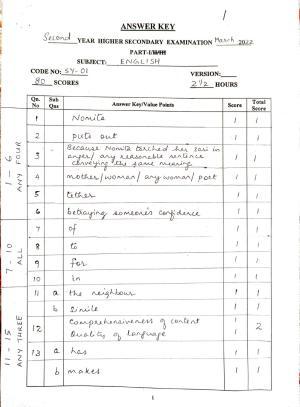 1
ANSWER KEY
Second YEAR HIGHER SECONDARY EXAMINATION March 2022
PART-I/II/III
SUBJECT: ENGLISH
CODE NO: SY-01 VERSION:
80 SCORES 2½ HOURS
Qn. No Sub Qns Answer Key/Value Points Score Total Score
1 Nomita 1 1
2 puts out 1 1
3 Because Nomita torched her sari in anger/ any reasonable sentence conveying the same meaning 1 1
4 mother/woman/ any woman/ poet 1 1
5 tether 1 1
6 betraying someone's confidence 1 1
7 of 1 1
8 to 1 1
9 for 1 1
10 in 1 1
11 a the neighbour 1 1
b Simile 1 1
12 Comprehensiveness of content
Quality of language 2
13 a has 1 1
b makes 1 1
1 - 6
ANY FOUR
7 - 10
ALL
11 - 15
ANY THREE
1